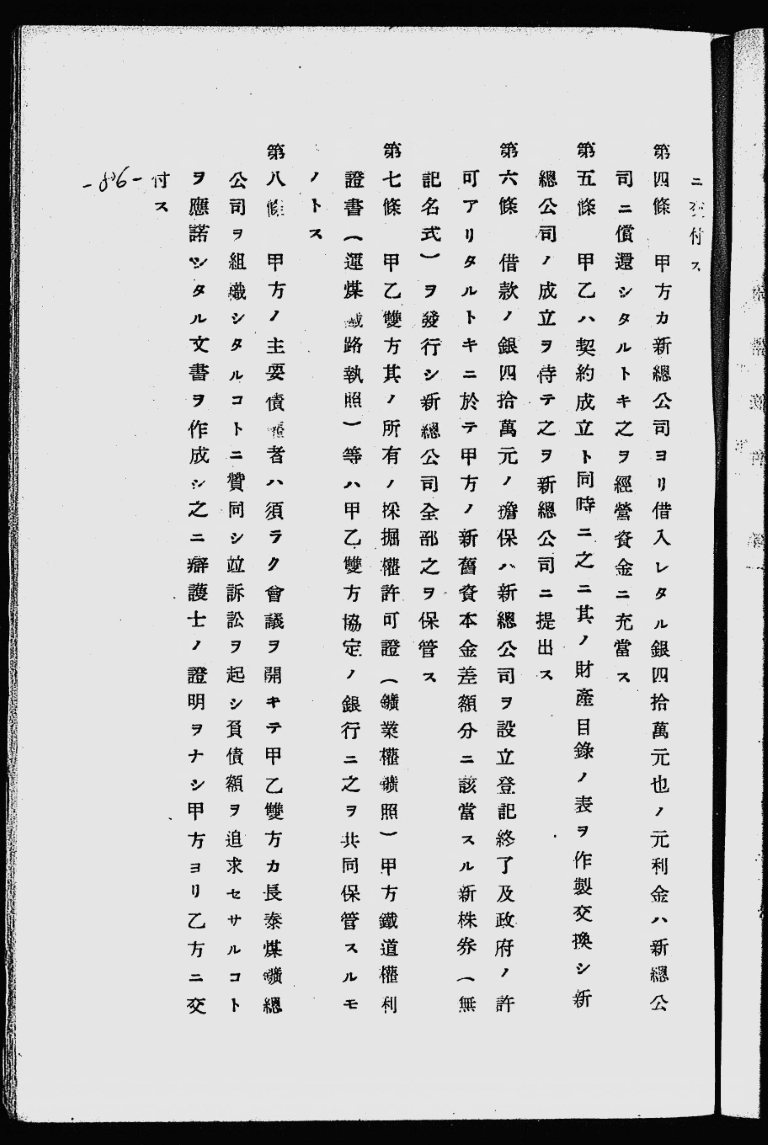 ニ交付ス
第四條　甲方カ新總公司ヨリ借入レタル銀四拾萬元也ノ元利金ハ新總公
司ニ償還シタルトキ之ヲ經營資金ニ充當ス
第五條　甲乙ハ契約成立ト同時ニ之ニ其ノ財產目錄ノ表ヲ作製交換シ新
總公司ノ成立ヲ待テ之ヲ新總公司ニ提出ス
第六條　借款ノ銀四拾萬元ノ擔保ハ新總公司ヲ設立登記終了及政府ノ許
可アリタルトキニ於テ甲方ノ新舊資本金差額分ニ該當スル新株券（無
記名式）ヲ發行シ新總公司全部之ヲ保管ス
第七條　甲乙雙方其ノ所有ノ採掘權許可證（鑛業權鑛照）甲方鐵道權利
證書（運煤鐵路執照）等ハ甲乙雙方協定ノ銀行ニ之ヲ共同保管スルモ
ノトス
第八條　甲方ノ主要債權者ハ須ラク會議ヲ開キテ甲乙雙方カ長泰煤鑛總
公司ヲ組織シタルコトニ贊同シ竝訴訟ヲ起シ負債額ヲ追求セサルコト
ヲ應諾シタル文書ヲ作成シ之ニ辯護士ノ證明ヲナシ甲方ヨリ乙方ニ交
付ス
-86-